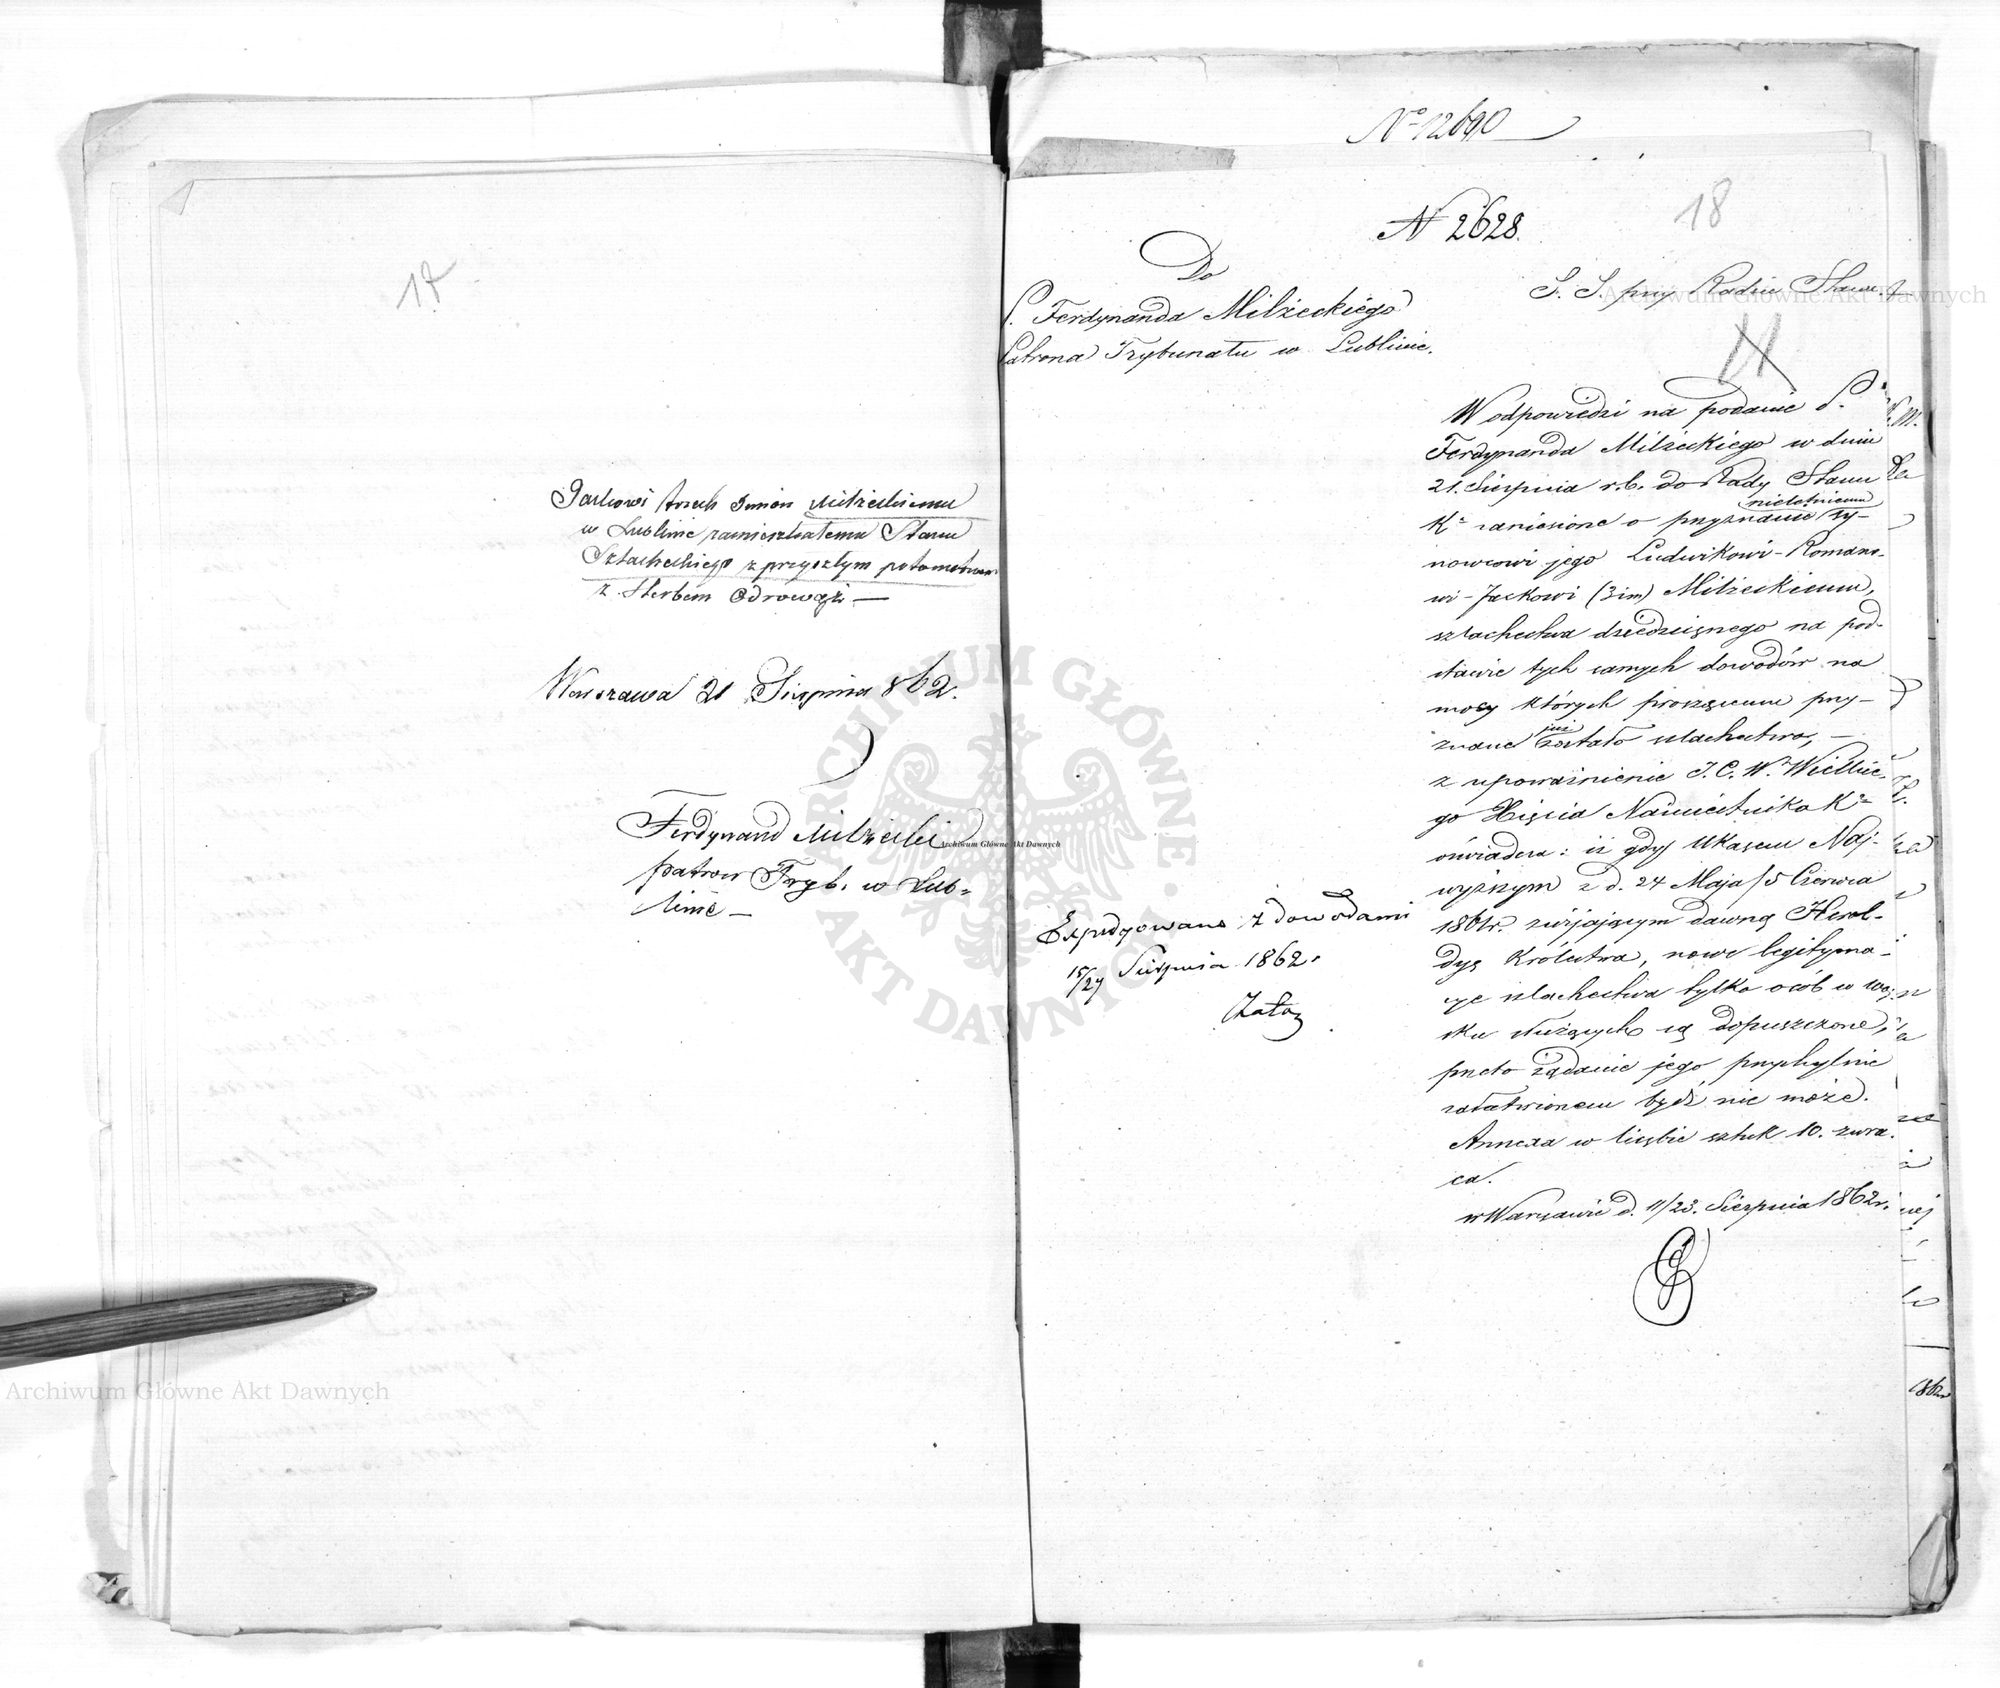 17
Jackowi trzech Imion Milżeckiemu
w Lublinie zamieszkałemu Stanu
Szlacheckiego z przyszłym potomstwem
z Herbem Odrowąż —
Warszawa 21 Sierpnia 862.
Ferdynand Milżecki
patron Tryb. w Lub=
linie —
No 12690
N 2628.
18
Do
P. Ferdynanda Milżeckiego
Patrona Trybunału w Lublinie.
S. S. przy Radzie Stanu
W odpowiedzi na podanie P.
Ferdynanda Milżeckiego w dniu
21. Sierpnia r.b. do Rady Stanu
nieletniemu
Kr zaniesione o przyznanie sy-
nowi jego Ludwikowi-Romano-
wi-Jackowi (3 im) Milżeckiemu,
szlachectwa dziedzicznego na pod-
stawie tych samych dowodów na
mocy których proszącemu przy-
już
znane zostało szlachectwo, —
z upoważnienia J. C. W. Wielkie-
go Xięcia Namiestnika Kr
oświadcza: iż gdy Ukazem Naj-
wyższym z d. 24 Maja/5 Czerwca
1861r. zwijającym dawną Herol-
dyą Królestwa, nowe legityma-
cye szlachectwa tylko osób w woj-
sku służących są dopuszczone,
przeto żądanie jego przychylnie
załatwionem bydź nie może.
Annexa w liczbie sztuk 10. zwra-
ca.
w Warszawie d. 11/23. Sierpnia 1862r.
Expedyowano z dowodami
15/27 Sierpnia 1862.
Archiwum Główne Akt Dawnych
Archiwum Główne Akt Dawnych
Archiwum Główne Akt Dawnych
ARCHIWUM GŁÓWNE
AKT DAWNYCH